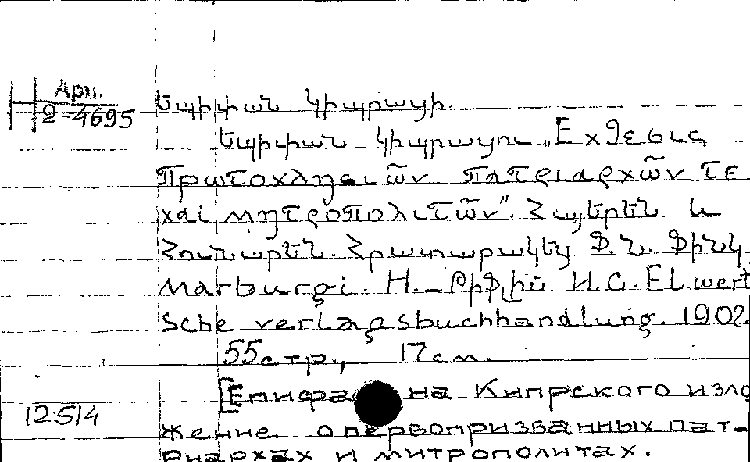 Арм.
2-4695
Եպիփան Կիպրացի.
Եպիփան Կիպրացու „Ἔκθεσις
Πρωτοκλησιῶν πατριαρχῶν τε
καὶ μητροπολιτῶν". Հայերեն և
Հունարեն. Հրատարակեց Ֆ. Ն. Ֆինկ
Marburgi. Н. Elwert
sche verlagsbuchhandlung. 1902.
55 стр., 17 см.
[Епифана Кипрского изло
12514
жение о первопризванных пат-
риархах и митрополитах.